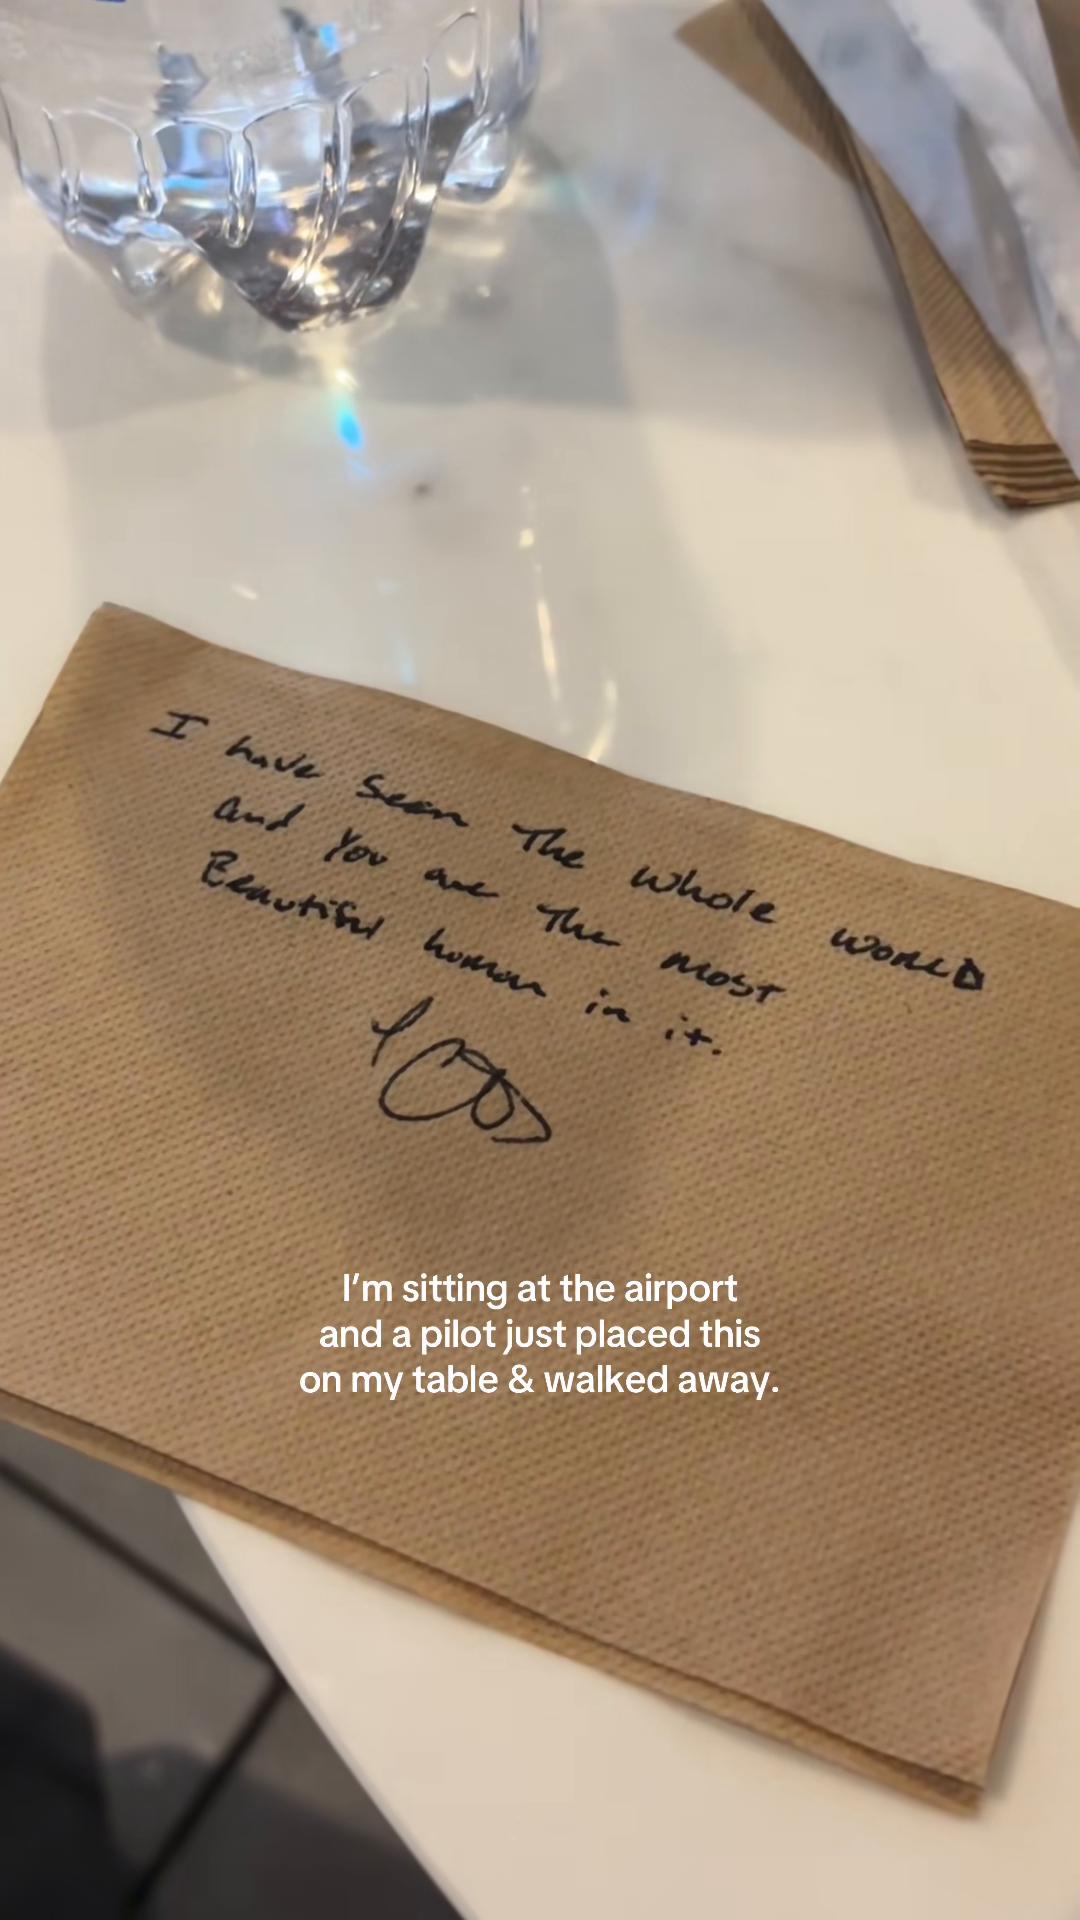 I have seen The whole WORLD
and You are The most
Beautiful human in it.
I'm sitting at the airport
and a pilot just placed this
on my table & walked away.